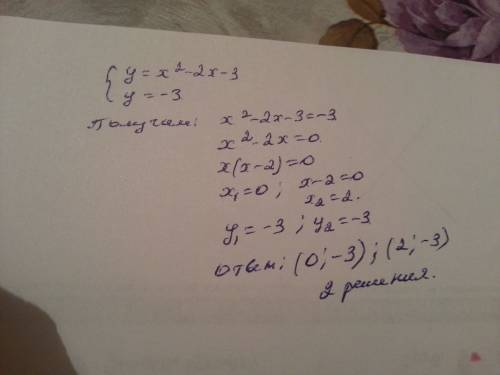 { y = x² - 2x - 3
y = -3
Получаем: x² - 2x - 3 = -3
x² - 2x = 0
x(x - 2) = 0
x₁ = 0 ; x - 2 = 0
x₂ = 2.
y₁ = -3 ; y₂ = -3
ответ: (0; -3) ; (2; -3)
2 решения.